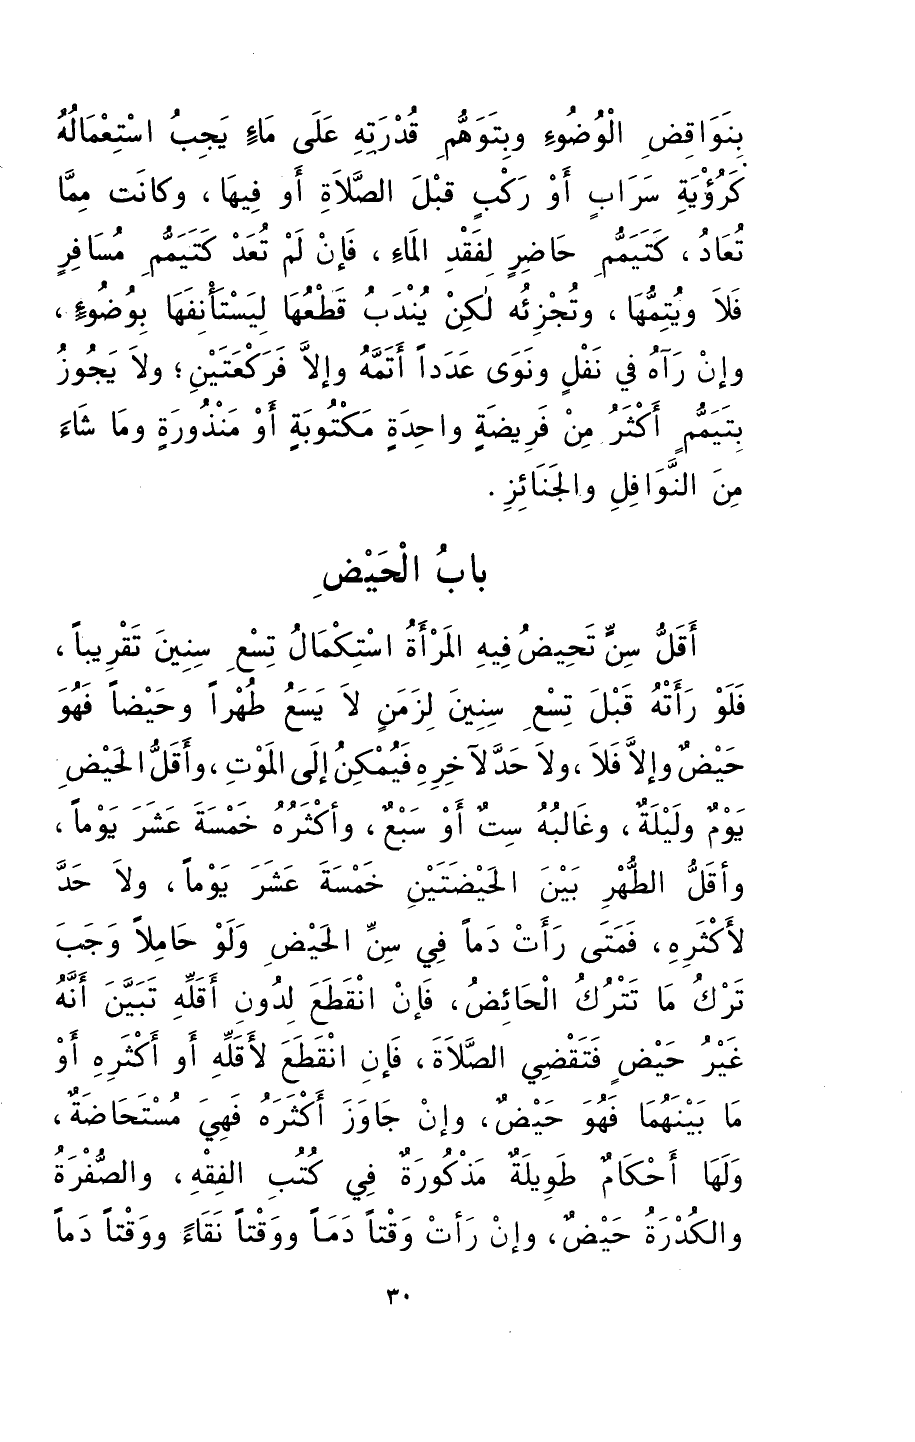 بِنَوَاقِضِ الْوُضُوءِ وبِتَوَهُّمِ قُدْرَتِهِ عَلَى مَاءٍ يَجِبُ اسْتِعْمَالُهُ
كَرُؤْيَةِ سَرَابٍ أَوْ رَكْبٍ قبْلَ الصَّلاَةِ أَو فِيهَا، وكانَت مِمَّا
تُعَادُ، كَتَيَمُّمِ حَاضِرٍ لِفَقْدِ المَاءِ، فَإنْ لَمْ تُعَدْ كَتَيَمُّمِ مُسَافِرٍ
فَلاَ ويُتِمُّهَا، وتُجْزِئُه لٰكِنْ يُنْدَبُ قَطْعُهَا لِيَسْتَأْنِفَهَا بِوُضُوءٍ،
وإنْ رَآهُ في نَفْلٍ ونَوَى عَدَداً أَتَمَّهُ وإلاَّ فَرَكْعَتَيْنِ؛ ولاَ يَجُوزُ
بِتَيَمُّمٍ أَكْثَرُ مِنْ فَرِيضَةٍ واحِدَةٍ مَكْتُوبَةٍ أَوْ مَنْذُورَةٍ ومَا شَاءَ
مِنَ النَّوَافِلِ والجَنَائِزِ.
بابُ الْحَيْضِ
أَقَلُّ سِنٍّ تَحِيضُ فِيهِ المَرْأَةُ اسْتِكْمَالُ تِسْعِ سِنِينَ تَقْرِيباً،
فَلَوْ رَأَتْهُ قَبْلَ تِسْعِ سِنِينَ لِزَمَنٍ لاَ يَسَعُ طُهْراً وحَيْضاً فَهُوَ
حَيْضٌ وإلاَّ فَلاَ، ولاَ حَدَّ لآخِرِهِ فَيُمْكِنُ إلَى المَوْتِ، وأَقَلُّ الحَيْضِ
يَوْمٌ ولَيْلَةٌ، وغَالِبُهُ سِتٌ أَوْ سَبْعٌ، وأَكْثَرُهُ خَمْسَةَ عَشَرَ يَوْماً،
وأَقَلُّ الطُّهْرِ بَيْنَ الحَيْضَتَيْنِ خَمْسَةَ عَشَرَ يَوْماً، ولاَ حَدَّ
لأَكْثَرِهِ، فَمَتَى رَأَتْ دَماً فِي سِنِّ الحَيْضِ وَلَوْ حَامِلاً وَجَبَ
تَرْكُ مَا تَتْرُكُ الْحَائِضُ، فَإنْ انْقَطَعَ لِدُونِ أَقَلِّهِ تَبَيَّنَ أَنَّهُ
غَيْرُ حَيْضٍ فَتَقْضِي الصَّلاَةَ، فَإنِ انْقَطَعَ لأَقَلِّهِ أَو أَكْثَرِهِ أَوْ
مَا بَيْنَهُمَا فَهُوَ حَيْضٌ، وإنْ جَاوَزَ أَكْثَرَهُ فَهِيَ مُسْتَحَاضَةٌ،
وَلَهَا أَحْكَامٌ طَوِيلَةٌ مَذْكُورَةٌ فِي كُتُبِ الفِقْهِ، والصُّفْرَةُ
والكُدْرَةُ حَيْضٌ، وإنْ رَأتْ وَقْتاً دَمَاً ووَقْتاً نَقَاءً ووَقْتاً دَماً
٣٠